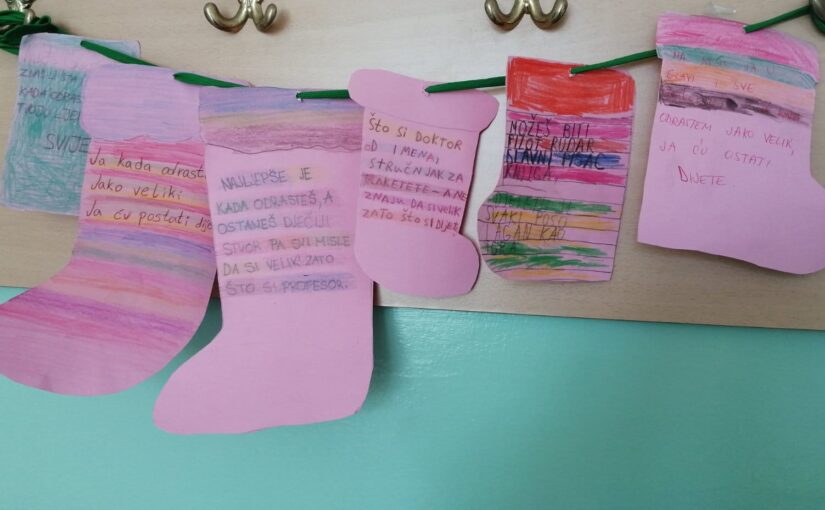 KADA ODRAS
TVOJU LJE
SVIJE
Ja kada odrast
Jako veliki
Ja ću postati dije
NAJLJEPŠE JE
KADA ODRASTEŠ, A
OSTANEŠ DJEČIJI
STVOR PA SVI MISLE
DA SI VELIK ZATO
ŠTO SI PROFESOR.
ŠTO SI DOKTOR
OD IMENA I
STRUČNJAK ZA
RAKETETE-A NE
ZNAJU DA SI VELIK
ZATO ŠTO SI DIJET
MOŽEŠ BITI
PILOT RUDAR
SLAVNI PISAC
KNJIGA,
SVAKI POSO
LAGAN KAO
I SVE
ODRASTEM JAKO VELIK,
JA ĆU OSTATI
DIJETE.